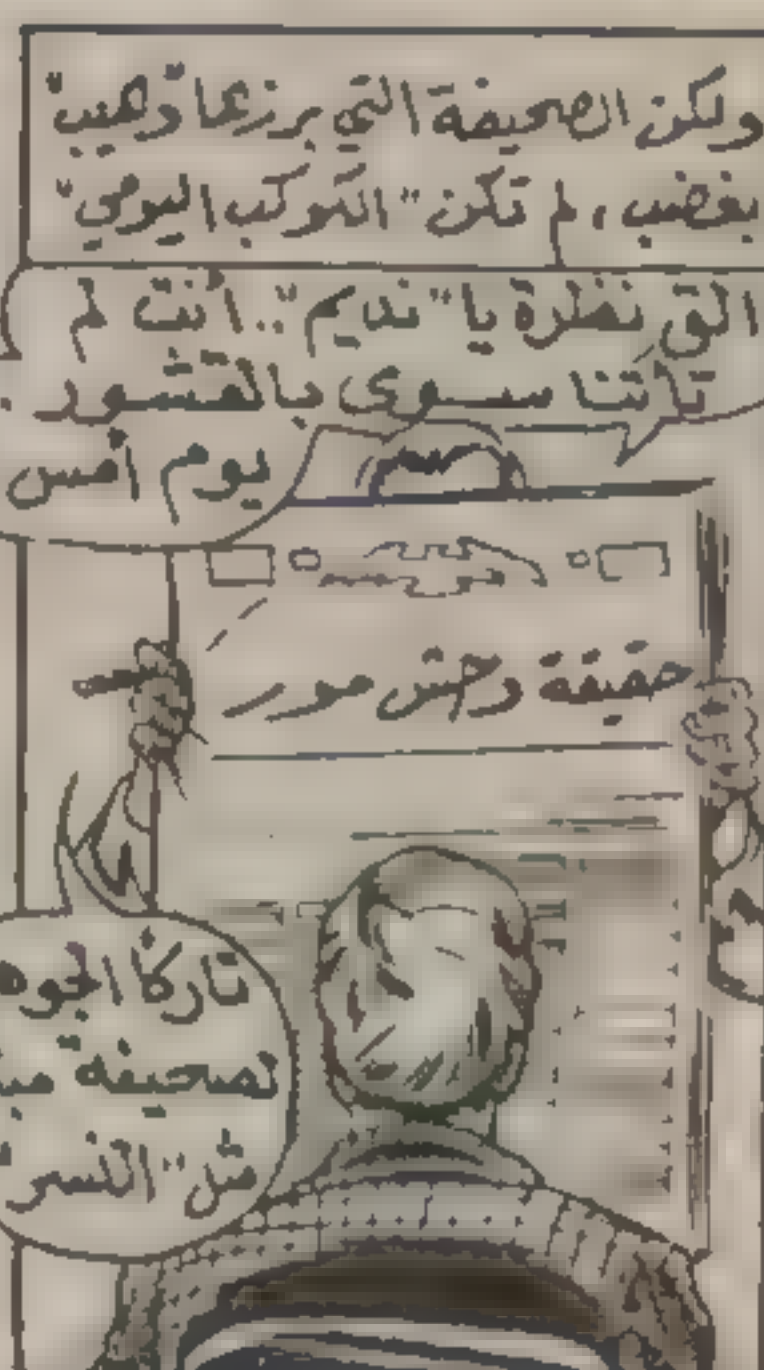 ولكن الصحيفة التي برزعها "وهيب"
بغضب، لم تكن "الكوكب اليومي"
الق نظرة يا "نديم".. أنت لم
تأتنا سوى بالقشور
يوم أمس
حقيقة وحش مور
تاركا
لصحيفة
مثل "النسر